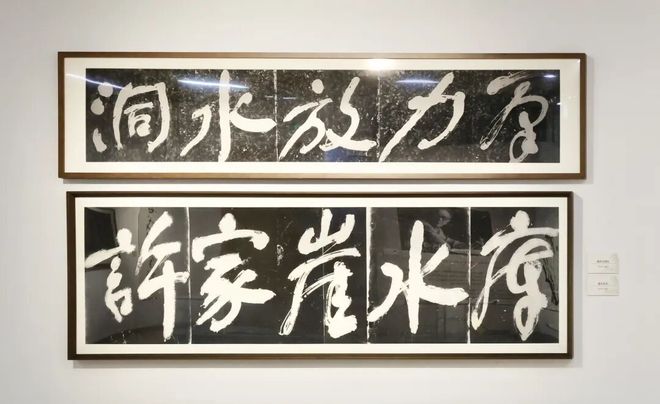 力放水洞
許家崖水庫